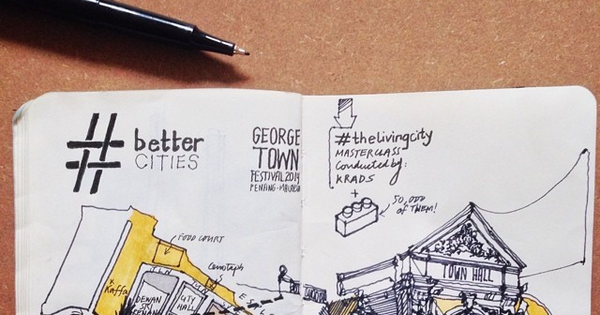 #
better
CITIES
GEORGE
TOWN
FESTIVAL2014
PENANG·MALAYSIA
#thelivingcity
MASTERCLASS
Conducted by:
KRADS
+
50,000
of THEM!
FOOD COURT
Cenotaph
Kaffa
DEWAN
SRI
PINANG
CITY
HALL
TOWN HALL